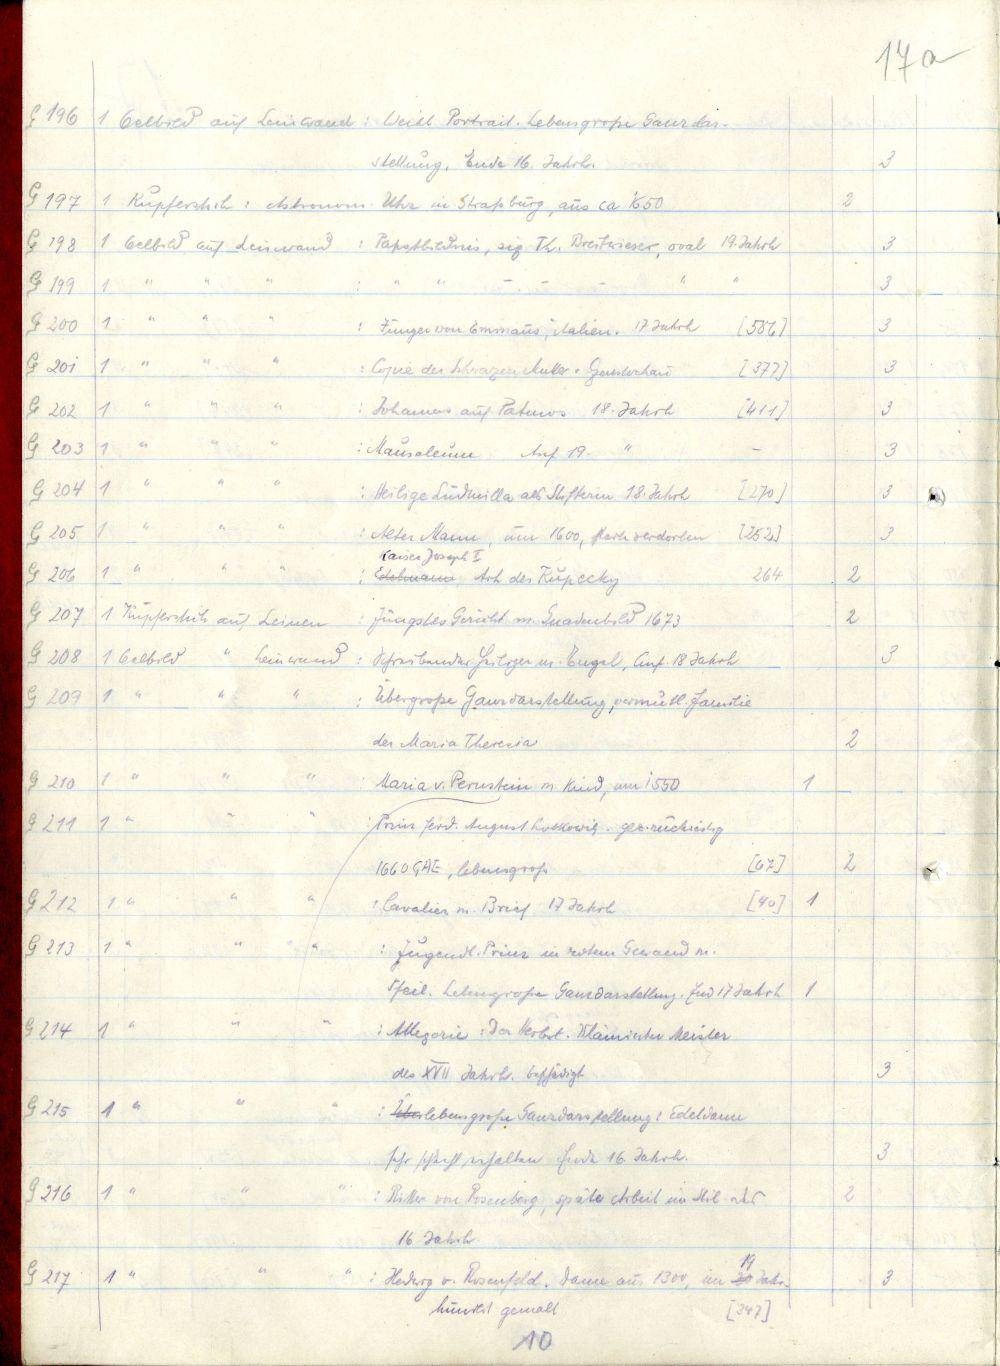 17a
G 196 1 Oelbild auf Leinwand : Weibl Portrait. Lebensgroße Ganzdar-
stellung, Ende 16. Jahrh. 3
G 197 1 Kupferstich : Astronom. Uhr in Straßburg, aus ca 1650 2
G 198 1 Oelbild auf Leinwand : Papstbildnis, sig Th. Breitwieser, oval 19. Jahrh 3
G 199 1 " " " : " " - - - " " 3
G 200 1 " " " : Jünger von Emmaus, italien. 17 Jahrh [586] 3
G 201 1 " " " : Copie der Mutter [377] 3
G 202 1 " " " : Johannes auf Patmos 18. Jahrh [411] 3
G 203 1 " " " : Mausoleum Anf 19. " - 3
G 204 1 " " " : Heilige Ludmilla als Stifterin 18. Jahrh [270] 3
G 205 1 " " " : Alter Mann, um 1600, stark verdorben [252] 3
Kaiser Joseph I
G 206 1 " " " : Edelmann Art des Kupecky 264 2
G 207 1 Kupferstich auf Leinen : Jüngstes Gericht m. Gnadenbild 1673 2
G 208 1 Oelbild " Leinwand : Schreibender Heiliger m. Engel, Anf. 18 Jahrh 3
G 209 1 " " " : Übergroße Ganzdarstellung, vermutl. Familie
der Maria Theresia 2
G 210 1 " " " : Maria v. Pernstein m. Kind, um 1550 1
G 211 1 " " " : Prinz Ferd. August Lobkowitz. gez. rückseitig
1660 GAE, lebensgroß [67] 2
G 212 1 " " " : Cavalier m. Brief 17 Jahrh [40] 1
G 213 1 " " " : Jugendl. Prinz in rotem Gewand m.
Pfeil. Lebensgroße Ganzdarstellung. End 17 Jahrh 1
G 214 1 " " " : Allegorie : Der Herbst. Vlämischer Meister
des XVII Jahrh. beschädigt 3
G 215 1 " " " : Überlebensgroße Ganzdarstellung : Edeldame
sehr schlecht erhalten Ende 16. Jahrh. 3
G 216 1 " " " : Ritter von Rosenberg, späte Arbeit im Stil des 2
16 Jahrh
19
G 217 1 " " " : Hedwig v. Rosenfeld. Dame aus 1300, im 20 Jahr- 3
hundert gemalt [347]
10